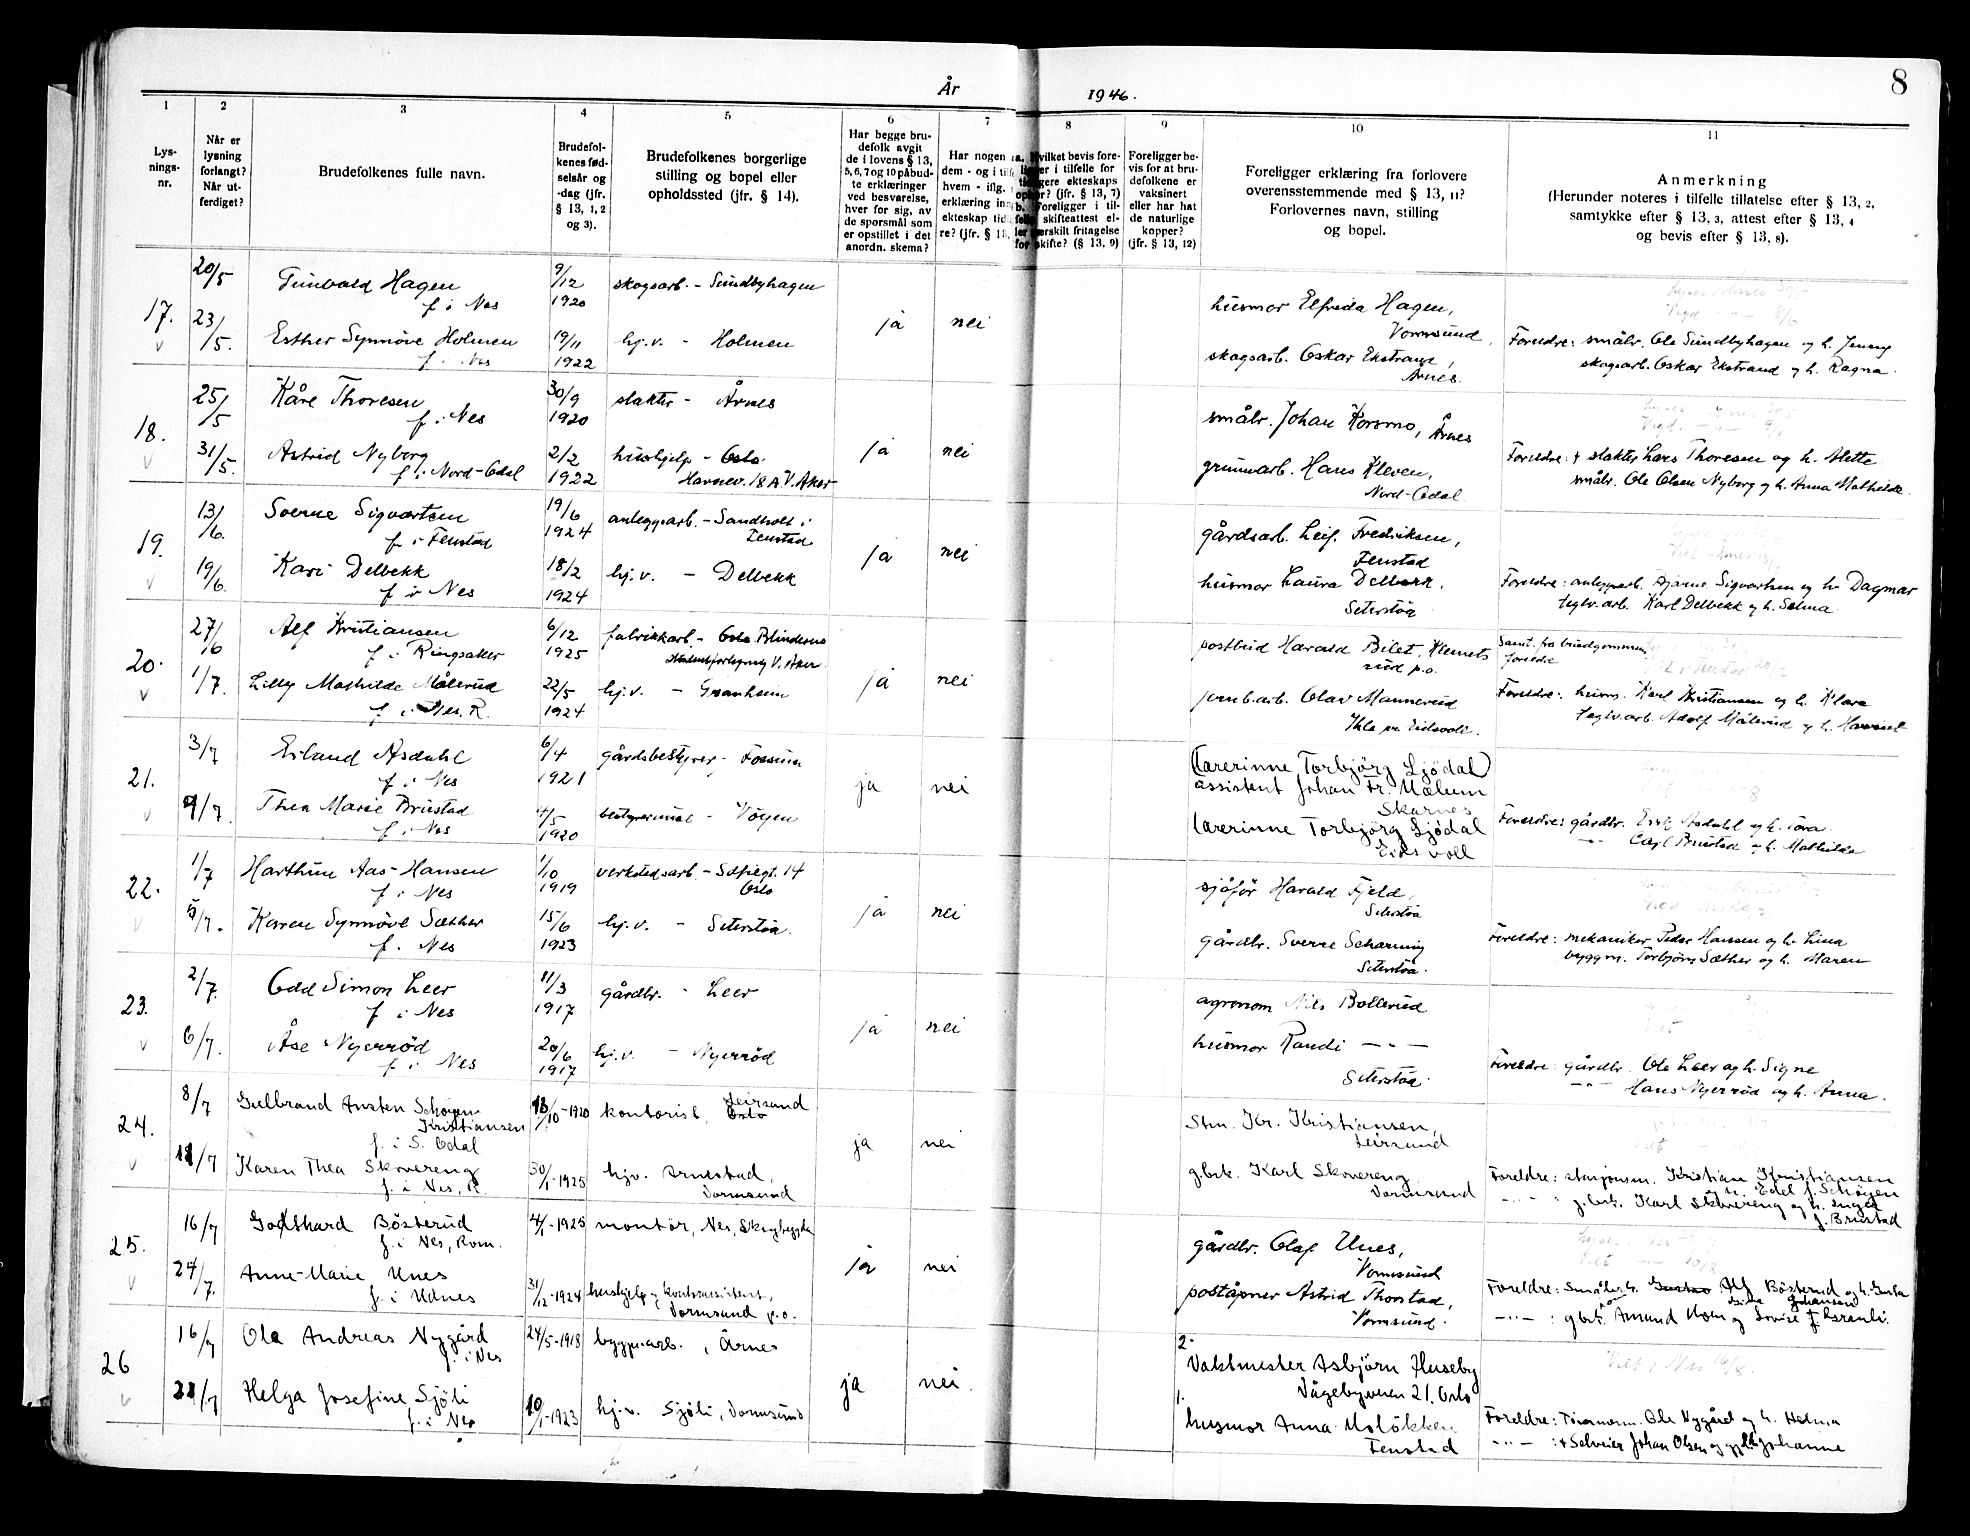 År 1946.
8
1 2 3 4 5 6 7 8 9 10 11
Lys-
nings-
nr.
Når er
lysning
forlangt?
Når ut-
ferdiget?
Brudefolkenes fulle navn.
Brudefol-
kenes fød-
selsår og
-dag (jfr.
§ 13, 1, 2
og 3).
Brudefolkenes borgerlige
stilling og bopel eller
opholdssted (jfr. § 14).
Har begge bru-
defolk avgit
de i lovens § 13,
5, 6, 7 og 10 påbud-
te erklæringer
ved besvarelse,
hver for sig, av
de spørsmål som
er opstillet i det
anordn. skema?
Har nogen
dem - og i
hvem - iflg.
erklæring
ekteskap tid
re? (jfr. § 1
Hvilket bevis fore-
i tilfelle for
ekteskaps
? (jfr. § 13, 7)
b. Foreligger i til-
skifteattest el-
særskilt fritagelse
for skifte? (§ 13, 9)
Foreligger be-
vis for at bru-
defolkene er
vaksinert
eller har hat
de naturlige
kopper?
(jfr. § 13, 12)
Foreligger erklæring fra forlovere
overensstemmende med § 13, 11?
Forlovernes navn, stilling
og bopel.
Anmerkning
(Herunder noteres i tilfelle tillatelse efter § 13, 2,
samtykke efter § 13, 3, attest efter § 13, 4
og bevis efter § 13, 8).
17. 20/5 Hagen 9/12 skogsarb. - Sundbyhagen husmor Elfreda Hagen,
f. i Nes 1920 Vormsund
23/5. Esther Synnøve Holmen 19/11 hj.v. - Holmen ja nei Foreldre: småbr. Ole Sundbyhagen og h. Jenny
f. i Nes 1922 skogsarb. Oskar Ekstrand, Årnes. skogsarb. Oskar Ekstrand og h. Ragna.
18. 25/5 Kåre Thoresen 30/9 slakter - Årnes
f. i Nes 1920 småbr. Johan Korsmo, Årnes
31/5. Astrid Nyborg 2/2 hushjelp - Oslo. ja nei Foreldre: + slakter Lars Thoresen og h. Mette
f. i Nord-Odal 1922 Havnev. 18 A V. Aker Hans Kleven, Nord-Odal småbr. Ole Olsen Nyborg og h. Anna Mathilde.
19. 13/6. Sverre Sigvartsen 19/6 anleggsarb. - Sandholt i
f. i Fenstad 1924 Fenstad gårdsarb. Leif Fredriksen,
Fenstad
19/6 Kari Delbekk 18/2 hj.v. - Delbekk ja nei husmor Laura Delbekk. Foreldre: anleggsarb. Bjarne Sigvartsen og h. Dagmar
f. i Nes 1924 Seterstøa teglv.arb. Karl Delbekk og h. Selma
20. 27/6 Alf Kristiansen 6/12 fabrikkarb. - Oslo Blindern postbud Harald Bilet, Klemets Samt. fra brudgommens
f. i Ringsaker 1925 V. Aker rud p.o. foreldre
1/7. Lilly Mathilde Målerud 22/5 hj.v. - Granheim ja nei jernb.arb. Olav Mannerud Foreldre: Karl Kristiansen og h. Klara
f. i Nes, R. 1924 Eidsvoll. teglv.arb. Adolf Målerud og h.
21. 3/7 Erland Asdahl 6/4 gårdsbestyrer - Fossum (lærerinne Torbjörg Ljödal)
f. i Nes 1921 assistent Johan Fr. Mælum
Skarnes
9/7. Thea Marie Brustad 4/5 - Vøyen ja nei lærerinne Torbjörg Ljödal Foreldre: gårdbr. Erik Asdahl og h. Tora
f. i Nes 1920 Eidsvoll Brustad og h. Mathilde
22. 1/7 Aas-Hansen 1/10 verkstedsarb. - 14
f. i Nes 1919 Oslo sjåfør Harald Fjeld,
Seterstøa
5/7. Karen Synnøve Sæther 15/6 hj.v. - Seterstøa. ja nei gårdbr. Sverre Scharning Foreldre: mekaniker Peder Hansen og h. Lina
f. i Nes 1923 Seterstøa. byggm. Torbjørn Sæther og h. Maren
23. 2/7. Odd Simon Leer 11/3 gårdbr. - Leer agronom Nils Bollerud
f. i Nes 1917
6/7. Åse Nyerrød 20/6 hj.v. - Nyerrød ja nei husmor Randi - " - Foreldre: gårdbr. Ole Leer og h. Signe
f. i Nes 1917 Seterstøa. - " - Hans Nyerrød og h. Anna.
24. 8/7 Gulbrand Austen Schøyen 13/10-1920 kontorist, Leirsund Stm. Kr. Kristiansen,
Kristiansen Oslo Leirsund
f. i S. Odal
11/7 Karen Thea Skovereng 30/1-1925 hjv. Arnestad, ja nei gbr. Karl Skovereng Foreldre: stasjonsm. Kristian Kristiansen
f. i Nes, R. Vormsund Vormsund h. Edel f. Schøyen
- " - : gbr. Karl Skovereng og h. Inga
f. Brustad
25. 16/7 Godthard Bösterud 4/1-1925 montör, Nes, Skogbygda
f. i Nes, Rom. gårdbr. Olaf Unes,
Vormsund
24/7. Anne-Marie Unes 31/12-1924 hushjelp og kontorassistent, ja nei poståpner Astrid Thorstad, Foreldre: Småbr. Alf Bösterud og h. Gusta
f. i Udnes Vormsund p.o. Vormsund. - " - : gbr. Amund Unes og h. Lovise f.
26 16/7 Ole Andreas Nygård 24/5-1918 byggn.arb., Årnes 2. Vaktmester Asbjörn Huseby
f. i Nes Vågebyveien 21. Oslo
21/7 Helga Josefine Sjöli 10/1-1923 hj.v. Sjöli, Vormsund ja nei. 1. husmor Anna Moløkken Foreldre: Ole Nygård og h. Helma
f. i Nes Fenstad - " - : + Selveier Johan Olsen og Johanne